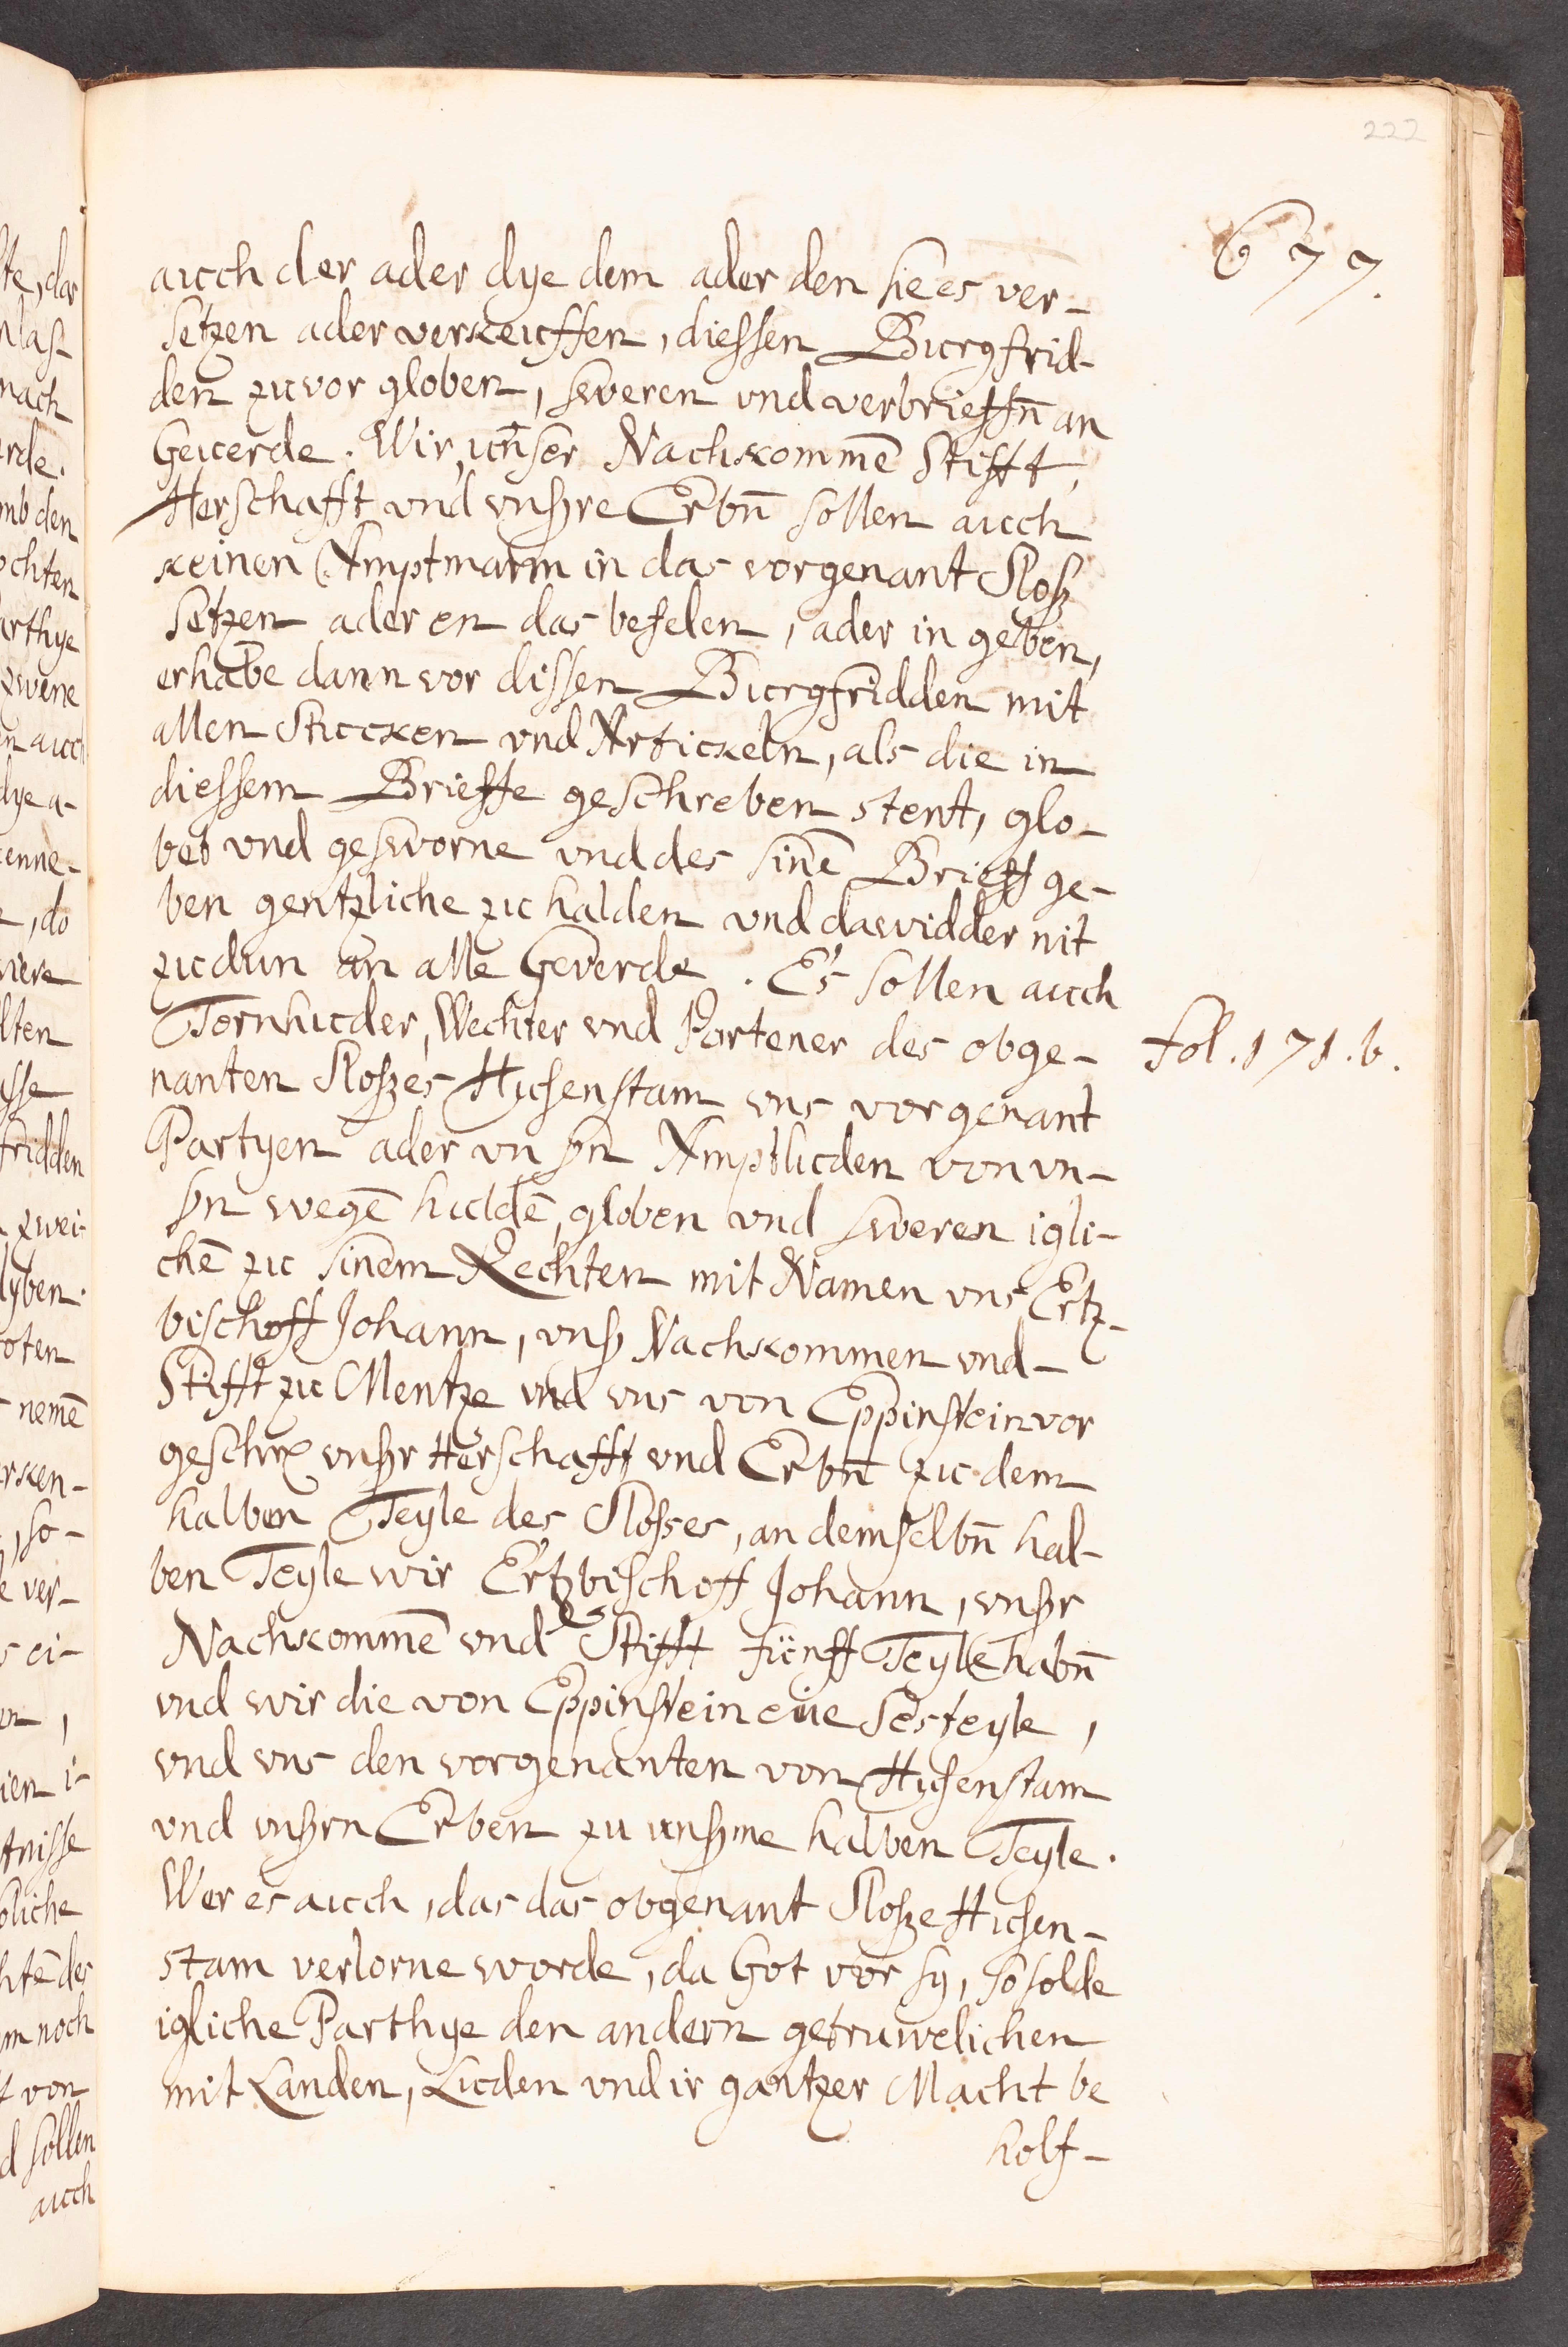 222
677.
auch der ader dye dem ader den sie es ver-
setzen ader verkeuffen, diessen Burgfrid-
den zuvor globen, sweren und verbrieffn̄ an
Geuerde. Wir, unser Nachkomme͞ Stifft,
Herschafft und unsżre Erbn̄ sollen auch
keinen Amptmann in das vorgenant Sloß
setzen ader en das befelen, ader in geben,
er habe dann vor dissen Burgfridden mit
allen Stucken und Artickeln, als die in
diessem Brieffe geschreben stent, glo-
bet und gesworne und des sine͞ Brieff ge-
ben gentzliche zu halden und dawidder nit
zu dun an alle Geverde. Es sollen auch
Tornhuder, Wechter und Portener des obge-
fol. 171. b.
nanten Sloßes Husenstam uns vorgenant
Partyen ader un sżn Amptluden von un-
sżn wege͞ hulde͞, globen und sweren igli-
che͞ zu sinem Rechten mit Namen uns Ertz-
bischoff Johann, unsż Nachkommen und
Stifft zu Mentze und uns von Eppinstein vor
geschrꝛ unsżr Herschafft und Erbn̄ zu dem
halben Teyle des Slosses, an demselbn̄ hal-
ben Teyle wir Ertzbischoff Johann, unsżr
Nachkomme͞ und Stifft fünff Teyle habn̄
und wir die von Eppinstein eine Sesteyle,
und uns den vorgenanten von Husenstam
und unsżrn Erben zu unsżme halben Teyle.
Wer es auch, das das obgenant Sloße Husen-
stam verlorne worde, da Got vor sy, so solde
igliche Parthye den andern getruwelichen
mit Landen, Luden und ir gantzer Macht be
holf-